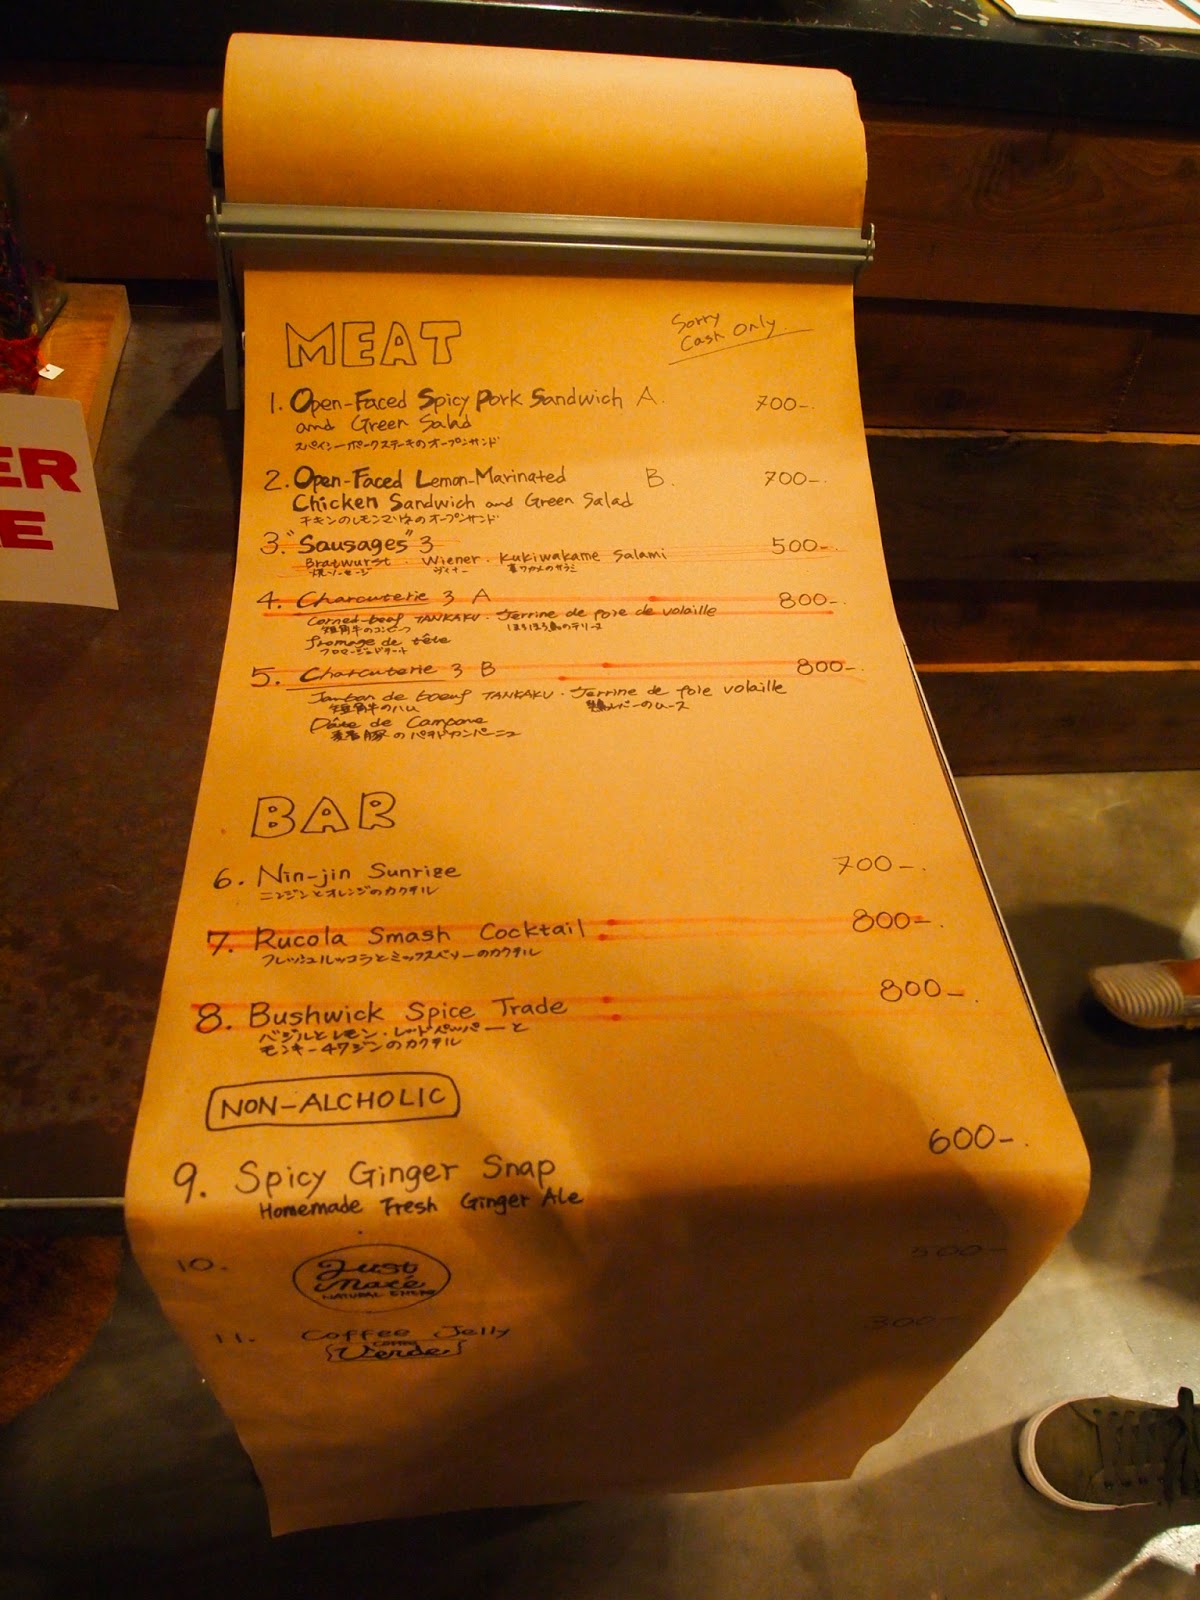 MEAT
Sorry
Cash Only.
1. Open-Faced Spicy Pork Sandwich A. 700-.
and Green Salad
スパイシーポークステーキのオープンサンド
2. Open-Faced Lemon-Marinated B. 700-.
Chicken Sandwich and Green Salad
チキンのレモンマリネのオープンサンド
3. "Sausages" 3 500-.
Bratwurst . Wiener . Kukiwakame Salami
焼ソーセージ ウィナー 茎ワカメのサラミ
4. Charcuterie 3 A 800-.
Corned-beef TANKAKU . Terrine de foie de volaille
短角牛のコンビーフ ほろほろ鳥のテリーヌ
fromage de tête
フロマージュドテート
5. Charcuterie 3 B 800-.
Jambon de boeuf TANKAKU . Terrine de foie volaille
短角牛のハム 鶏レバーのムース
Pâte de Campane
豚のパテドカンパーニュ
BAR
6. Nin-jin Sunrise 700-.
ニンジンとオレンジのカクテル
7. Rucola Smash Cocktail 800-.
フレッシュルッコラとミックスベリーのカクテル
8. Bushwick Spice Trade 800-.
バジルとレモン・レッドペッパーと
モンキー47ジンのカクテル
NON-ALCHOLIC
9. Spicy Ginger Snap 600-.
Homemade Fresh Ginger Ale
10. Just Maté 500-
NATURAL ENERGY
11. Coffee Jelly 300-
Verde
ER
E